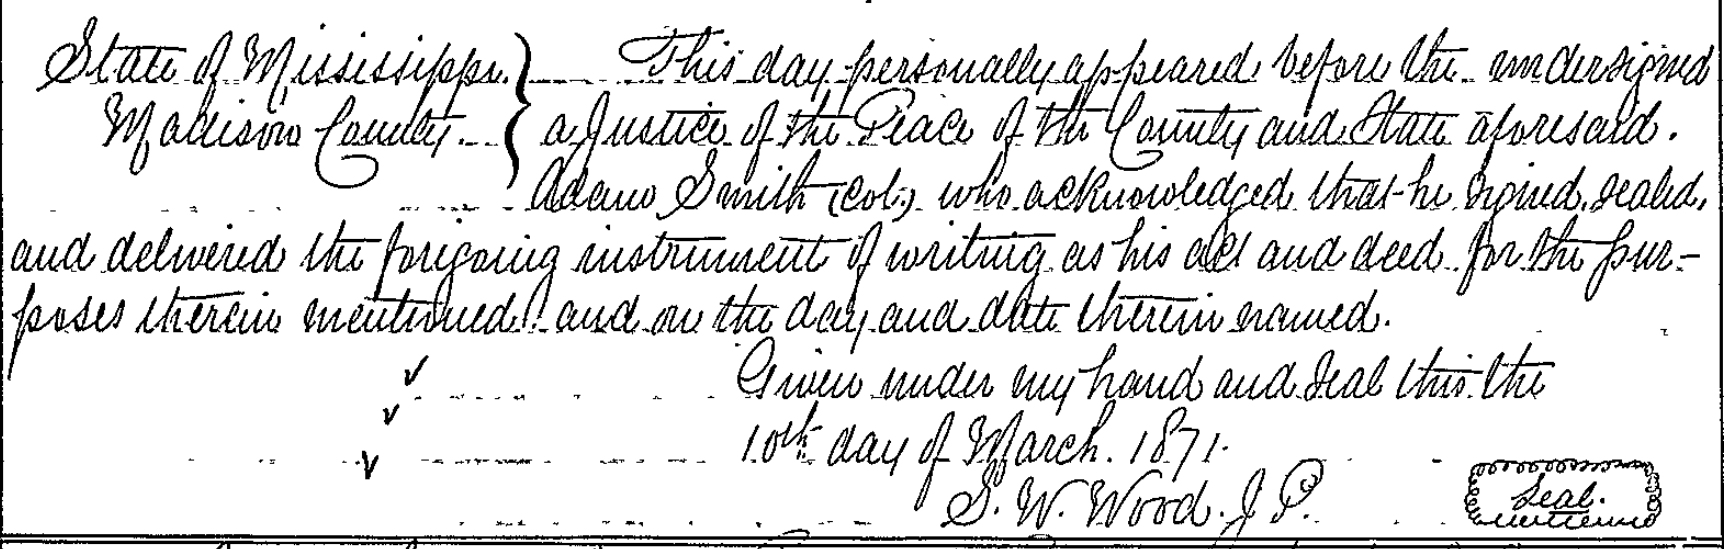 State of Mississippi. } This day personally appeared before the undersigned
Madison County. } a Justice of the Peace of the County and State aforesaid.
Adam Smith (col.) who acknowledged that he signed, sealed,
and delivered the foregoing instrument of writing as his act and deed for the pur-
poses therein mentioned. and on the day and date therein named.
Given under my hand and seal this the
10th day of March. 1871.
S. W. Wood. J. P. Seal.